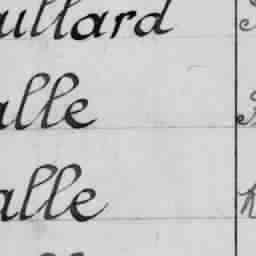 ullard
alle
alle